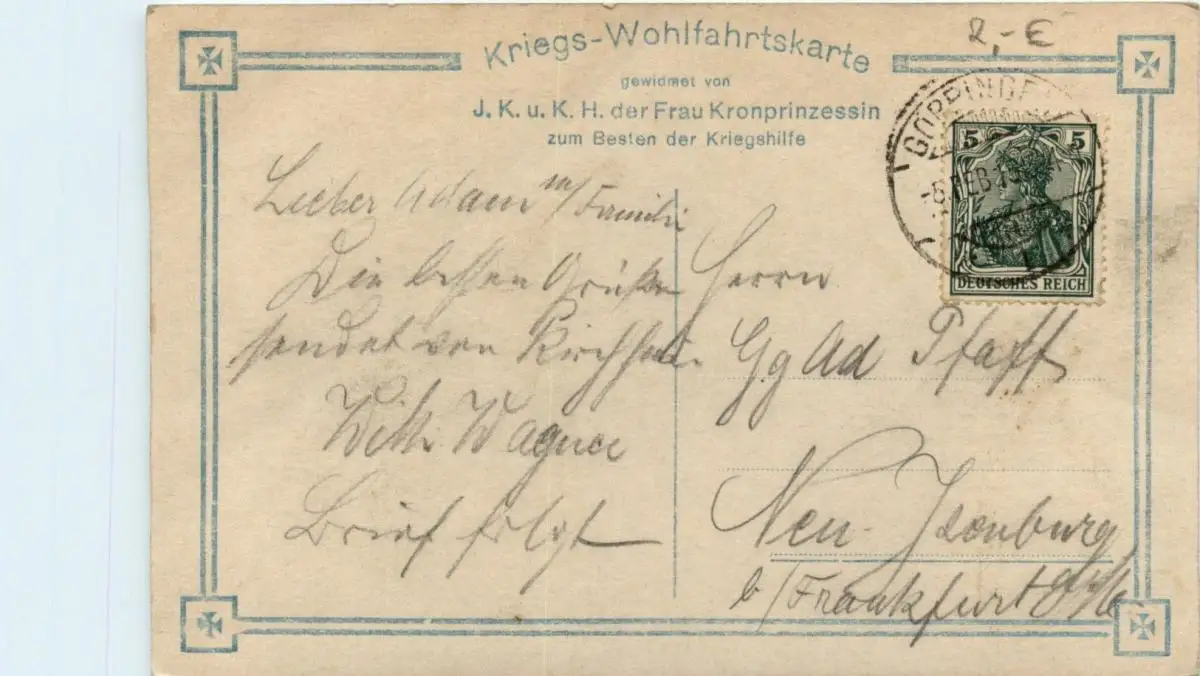 2,- €
Kriegs-Wohlfahrtskarte
gewidmet von
J. K. u. K. H. der Frau Kronprinzessin
zum Besten der Kriegshilfe
GÖPPINGEN
-6.FEB.15
5 5
DEUTSCHES REICH
Lieber Adam m/ Famili
Die besten Grüße
sendet von
Wilh. Wagner
Brief folgt
Herrn
Gg Ad Pfaff
Neu-Isenburg
b/Frankfurt a/M